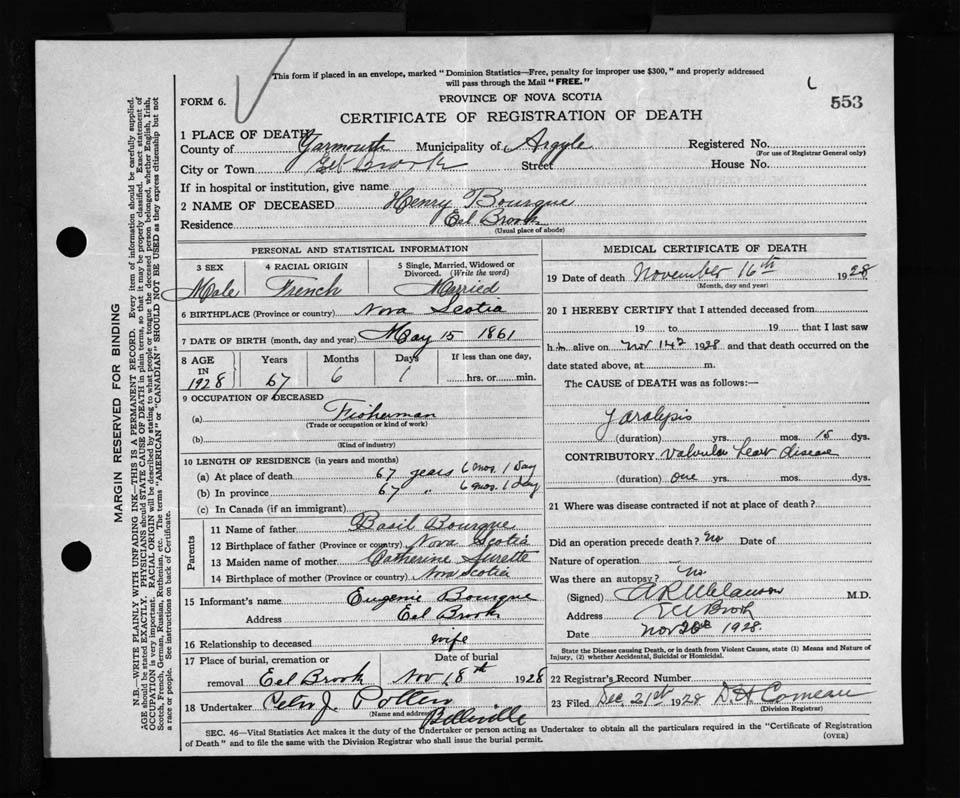 This form if placed in an envelope, marked "Dominion Statistics—Free, penalty for improper use $300," and properly addressed
will pass through the Mail "FREE."
FORM 6.
PROVINCE OF NOVA SCOTIA
553
CERTIFICATE OF REGISTRATION OF DEATH
1 PLACE OF DEATH
County of Yarmouth Municipality of Argyle Registered No.
(For use of Registrar General only)
City or Town Eel Brook Street House No.
If in hospital or institution, give name
2 NAME OF DECEASED Henry Bourque
Residence Eel Brook
(Usual place of abode)
PERSONAL AND STATISTICAL INFORMATION
3 SEX 4 RACIAL ORIGIN 5 Single, Married, Widowed or
Divorced. (Write the word)
Male French Married
6 BIRTHPLACE (Province or country) Nova Scotia
7 DATE OF BIRTH (month, day and year) May 15 1861
8 AGE Years Months Days If less than one day,
IN
1928 67 6 1 hrs. or min.
9 OCCUPATION OF DECEASED
(a) Fisherman
(Trade or occupation or kind of work)
(b)
(Kind of industry)
10 LENGTH OF RESIDENCE (in years and months)
(a) At place of death 67 years 6 mos. 1 Day
(b) In province 67 " 6 mos. 1 day
(c) In Canada (if an immigrant)
Parents
11 Name of father Basil Bourque
12 Birthplace of father (Province or country) Nova Scotia
13 Maiden name of mother Catherine Surette
14 Birthplace of mother (Province or country) Nova Scotia
15 Informant's name Eugenie Bourque
Address Eel Brook
16 Relationship to deceased wife
17 Place of burial, cremation or Date of burial
removal Eel Brook Nov 18th 1928
18 Undertaker Peter J. Pottier
(Name and address)
Belleville
MEDICAL CERTIFICATE OF DEATH
19 Date of death November 16th 1928
(Month, day and year)
20 I HEREBY CERTIFY that I attended deceased from
19 to 19 that I last saw
him alive on Nov 14th 1928 and that death occurred on the
date stated above, at m.
The CAUSE of DEATH was as follows:—
Paralysis
(duration) yrs. mos. 15 dys.
CONTRIBUTORY Valvular heart disease
(duration) one yrs. mos. dys.
21 Where was disease contracted if not at place of death?
Did an operation precede death? no Date of
Nature of operation
Was there an autopsy? No
(Signed) M.D.
Address Brook
Date Nov 20th 1928.
State the Disease causing Death, or in death from Violent Causes, state (1) Means and Nature of
Injury, (2) whether Accidental, Suicidal or Homicidal.
22 Registrar's Record Number
23 Filed Dec. 21st 1928 D. H. Comeau
(Division Registrar)
SEC. 46—Vital Statistics Act makes it the duty of the Undertaker or person acting as Undertaker to obtain all the particulars required in the "Certificate of Registration
of Death" and to file the same with the Division Registrar who shall issue the burial permit.
(OVER)
MARGIN RESERVED FOR BINDING
N.B.—WRITE PLAINLY WITH UNFADING INK—THIS IS A PERMANENT RECORD. Every item of information should be carefully supplied.
AGE should be stated EXACTLY. PHYSICIANS should STATE CAUSE OF DEATH in plain terms, so that it may be properly classified. Exact statement of
OCCUPATION is very important. RACIAL ORIGIN will be described by stating to what people or tongue the deceased person belonged, whether English, Irish,
Scotch, French, German, Russian, Ruthenian, etc. The terms "AMERICAN" or "CANADIAN" SHOULD NOT BE USED as they express citizenship but not
a race or people. See instructions on back of Certificate.